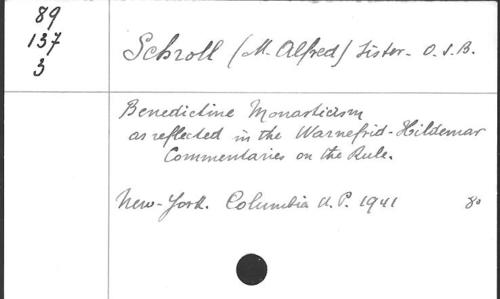 89
137
3
Schroll (M. Alfred) Sister. O.S.B.
Benedictine Monasticism
as reflected in the Warnefrid-Hildemar
Commentaries on the Rule.
New-York. Columbia U.P. 1941 8o